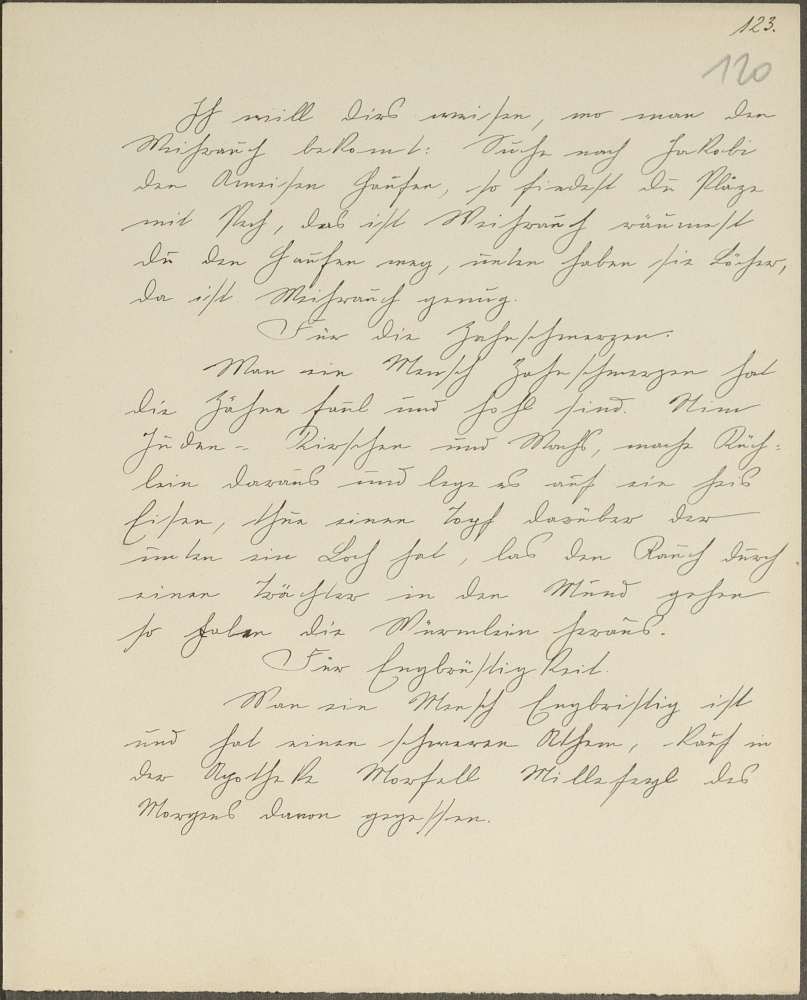 123.
120
Ich will dirs weisen, wo man den
Weihrauch bekomt: Suche nach Jakobi
den Ameisen Haufen, so findest du Pläze
mit Pech, das ist Weihrauch räumest
du den Haufen weg, unten haben sie Löcher,
da ist Weihrauch genug.
Für die Zahnschmerzen.
Wan ein Mensch Zahnschmerzen hat
die Zähne faul und hohl sind. Nim
Juden-Kirschen und Wachs, mache Küch-
lein daraus und lege es auf ein heis
Eisen, thue einen Topf darüber der
unten ein Loch hat, las den Rauch durch
einen Trächter in den Mund gehen
so falen die Würmlein heraus.
Für Engbrüstigkeit.
Wan ein Mensch Engbristig ist
und hat einen schweren Athem, kauf in
der Apotheke Morsell Millefezl des
Morgens davon gegessen.